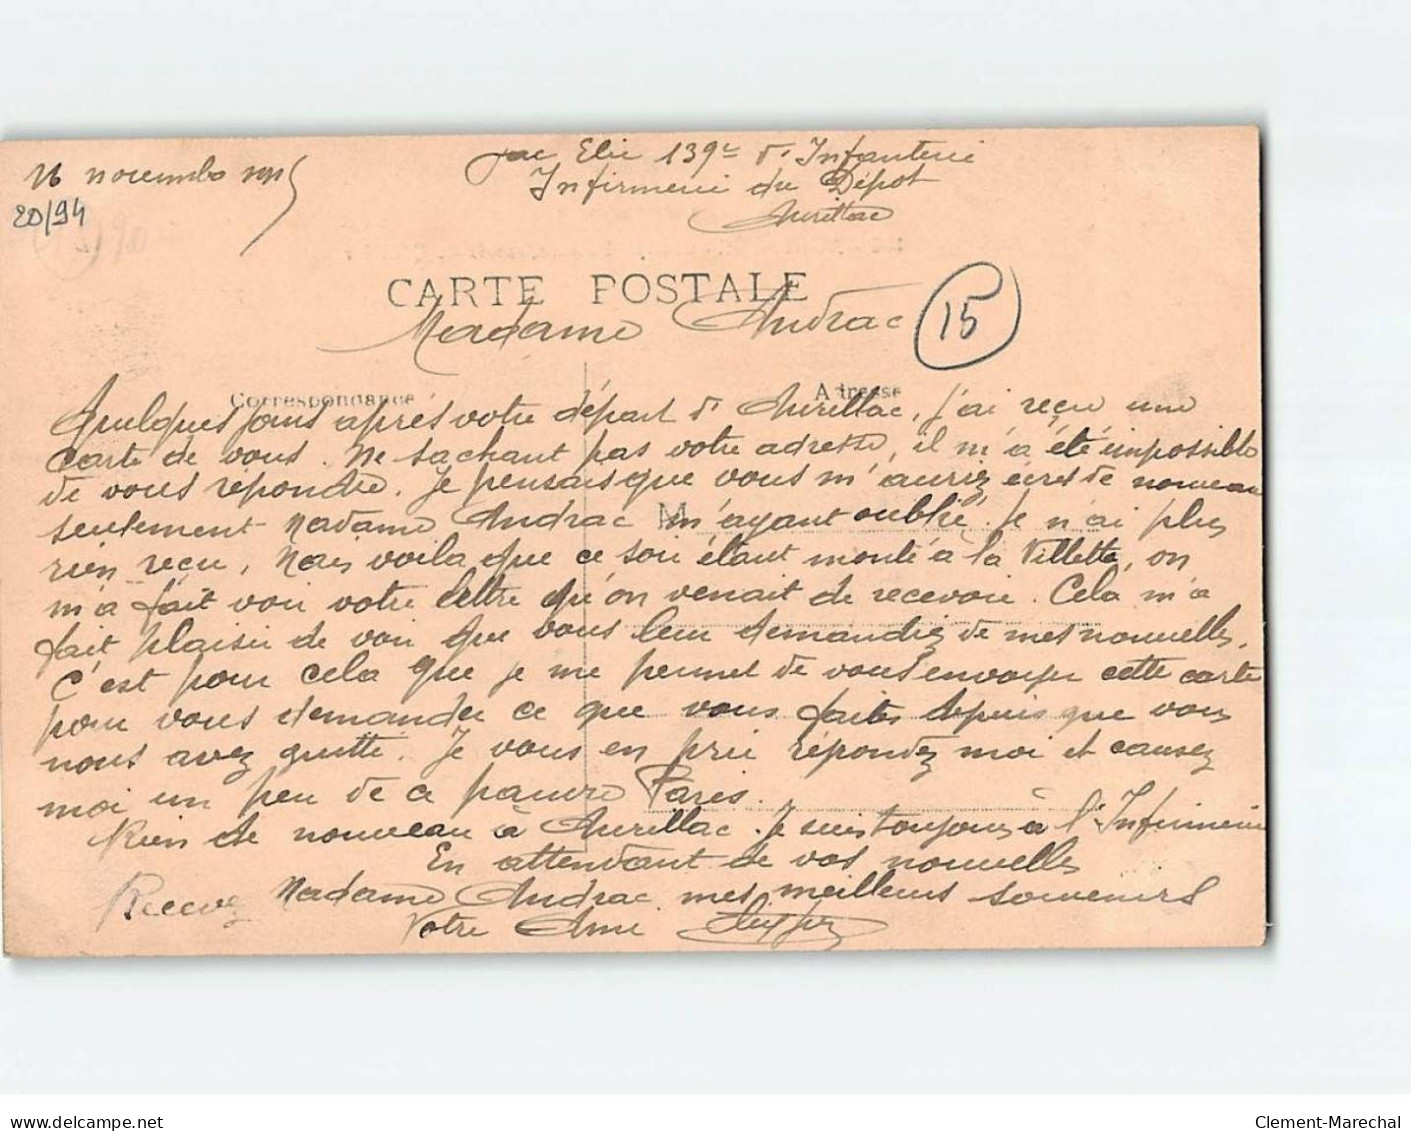 novembre 1915
20/94
Elie 139e d'Infanterie
Infirmerie du Dépot
Aurillac
CARTE POSTALE
Madame Andrac
15
Correspondance
Adresse
Quelques jours après votre départ d'Aurillac, j'ai reçu une
carte de vous. Ne sachant pas votre adresse, il m'a été impossible
de vous répondre. Je pensais que vous m'auriez écrit de nouveau
seulement Madame Andrac M m'ayant oublié je n'ai plus
rien reçu, Mais voila que ce soir étant monté à la Villette, on
m'a fait voir votre lettre qu'on venait de recevoir. Cela m'a
fait plaisir de voir que vous leur demandiez de mes nouvelles.
C'est pour cela que je me permet de vous envoyer cette carte
pour vous demander ce que vous faites depuis que vous
nous avez quitté. Je vous en prie répondez moi et causez
moi un peu de ce pauvre Paris.
Rien de nouveau à Aurillac. Je suis toujours à l'Infirmerie
En attendant de vos nouvelles
Recevez Madame Andrac mes meilleurs souvenirs
Votre Ami
delcampe.net
Clement-Marechal